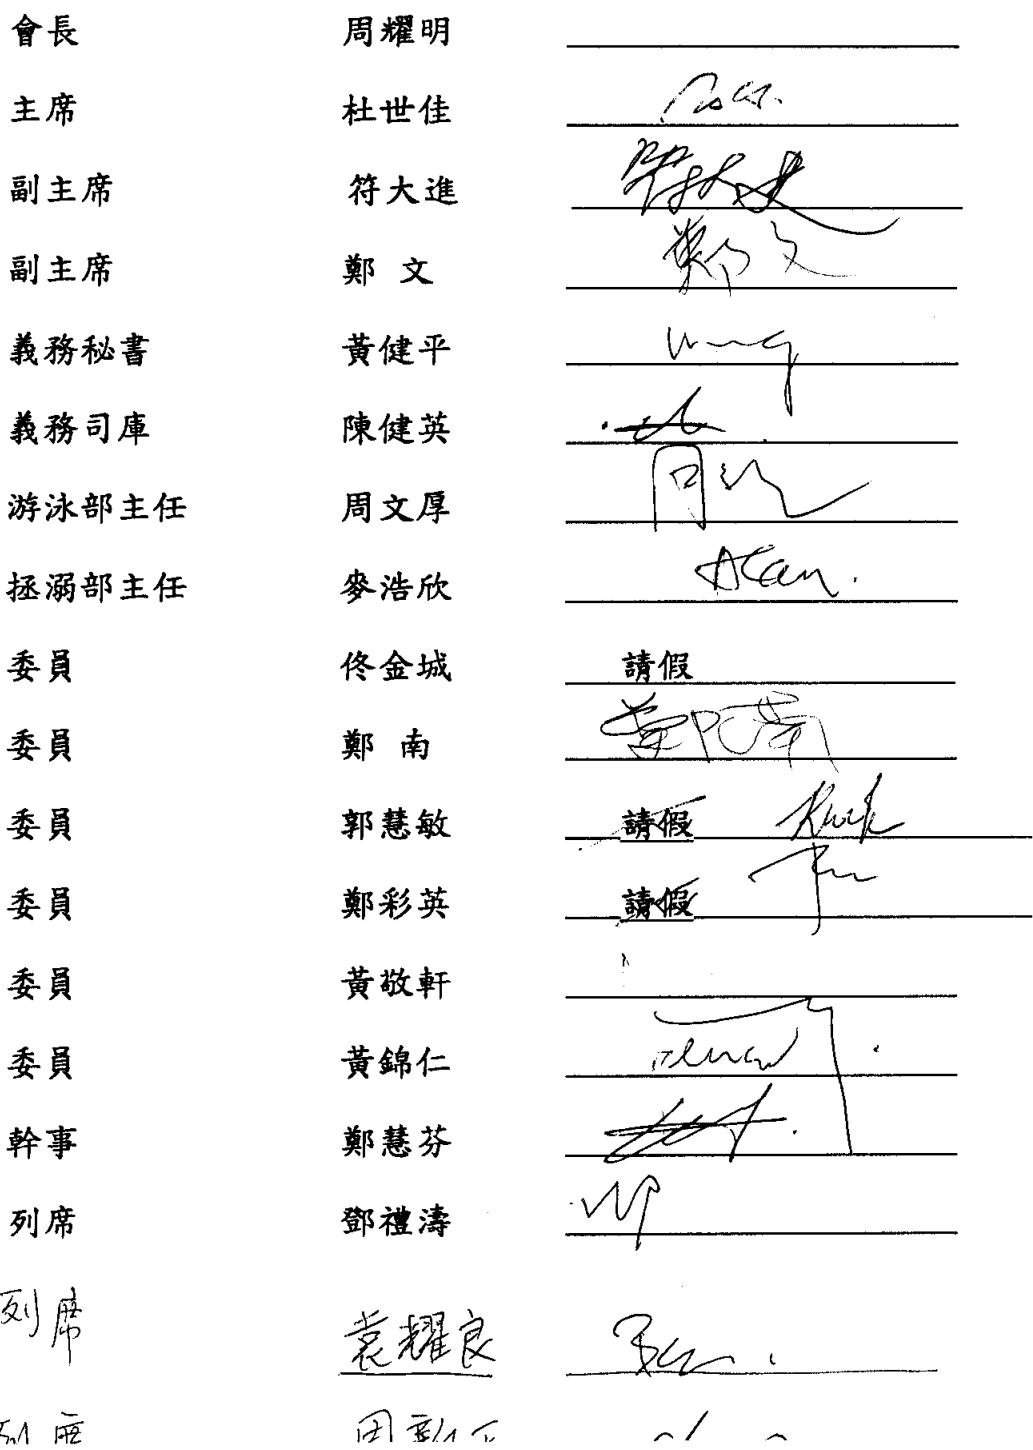 會長 周耀明
主席 杜世佳
副主席 符大進
副主席 鄭 文 鄭文
義務秘書 黃健平 Wong
義務司庫 陳健英
游泳部主任 周文厚
拯溺部主任 麥浩欣 Alan.
委員 佟金城 請假
委員 鄭 南 鄭南
委員 郭慧敏 請假 Kwok
委員 鄭彩英 請假
委員 黃敬軒
委員 黃錦仁
幹事 鄭慧芬
列席 鄧禮濤
列席 袁耀良
列席